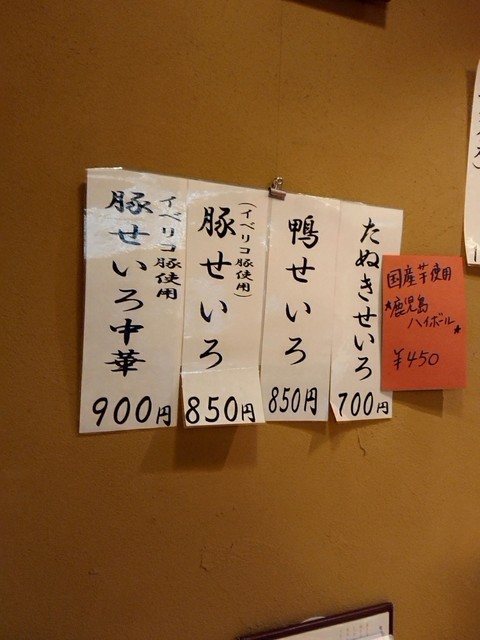 たぬきせいろ
700円
鴨せいろ
850円
(イベリコ豚使用)
豚せいろ
850円
イベリコ豚使用
豚せいろ中華
900円
国産芋使用
*鹿児島
ハイボール*
¥450